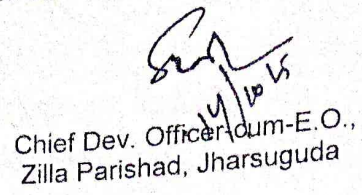 Chief Dev. Officer-cum-E.O.,
Zilla Parishad, Jharsuguda